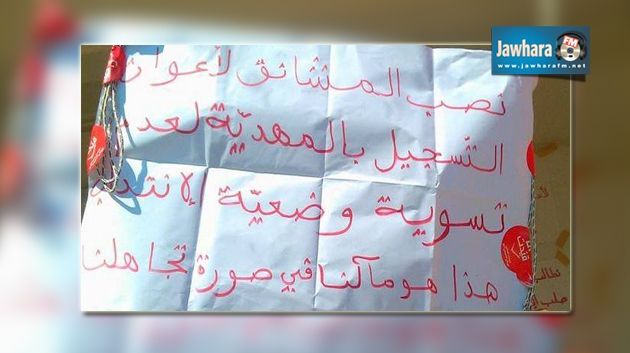 Jawhara FM
www.jawharafm.net
نصب المشانق لأعوان
التسجيل بالمهديّة لعدم
تسوية وضعيّة الإنتدا
هذا هو مآلنا في صورة تجاهلنا
نطالب